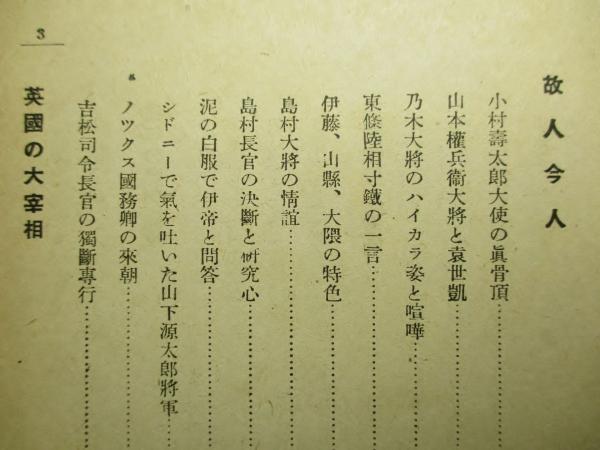 故人今人
小村壽太郎大使の眞骨頂
山本權兵衞大將と袁世凱
乃木大將のハイカラ姿と喧嘩
東條陸相寸鐵の一言
伊藤、山縣、大隈の特色
島村大將の情誼
島村長官の決斷と硏究心
泥の白服で伊帝と問答
シドニーで氣を吐いた山下源太郎將軍
ノツクス國務卿の來朝
吉松司令長官の獨斷專行
英國の大宰相
3